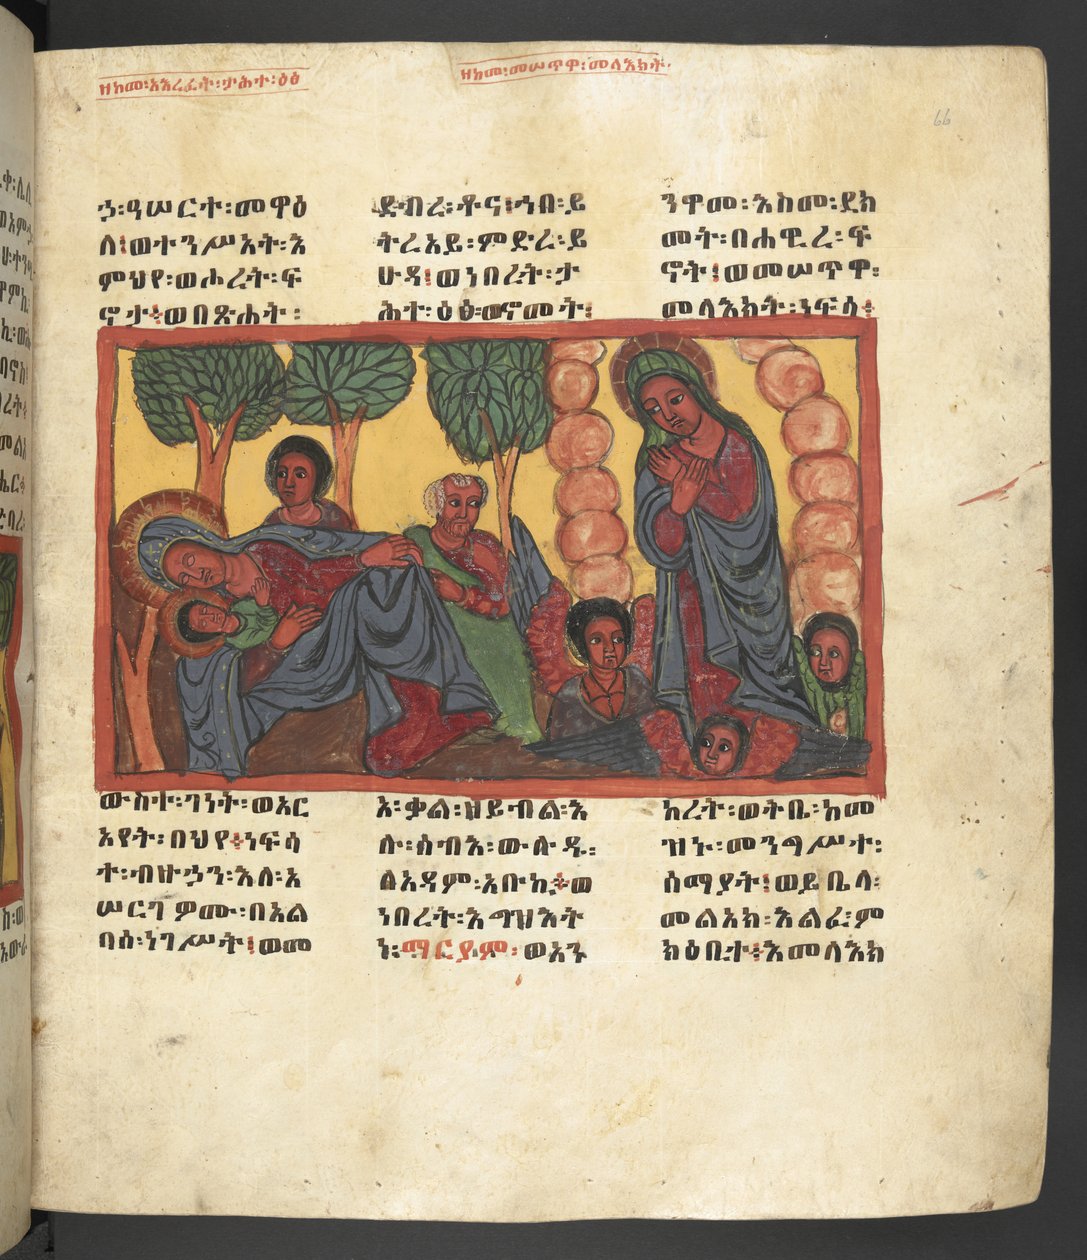 ዘከመ፡አእረፈት፡ታሕተ፡ዕፅ
ዘከመ፡መሠጥዋ፡መላእክት፡
66
ኃ፡ዓሠርተ፡መዋዕ
ለ፤ወተንሥአት፡እ
ምህየ፡ወሖረት፡ፍ
ኖታ፨ወበጽሐት፡
ድብረ፡ቶና፤ኀበ፡ይ
ትረአይ፡ምድረ፡ይ
ሁዳ፤ወነበረት፡ታ
ሕተ፡ዕፅ፡ወኖመት፡
ንዋመ፡እስመ፡ደክ
መት፡በሐዊረ፡ፍ
ኖት፤ወመሠጥዋ፡
መላእክት፡ነፍሳ፨
ውስተ፡ገነት፡ወአር
አየት፡በህየ፨ነፍሳ
ተ፡ብዙኃን፡እለ፡አ
ሠርገዎሙ፡በአል
ባሰ፡ነገሥት፤ወመ
እ፡ቃል፡ዘይብል፡እ
ሉ፡ሰብእ፡ውሉዱ፡
ለአዳም፡አቡከ፨ወ
ነበረት፡እግዝእት
ነ፡ማርያም፡ወአን
ከረት፡ወትቤ፡ከመ
ዝኑ፡መንግሥተ፡
ሰማያት፤ወይቤላ፡
መልአክ፡እልፈ፡ም
ክዕበተ፨እመላእክ